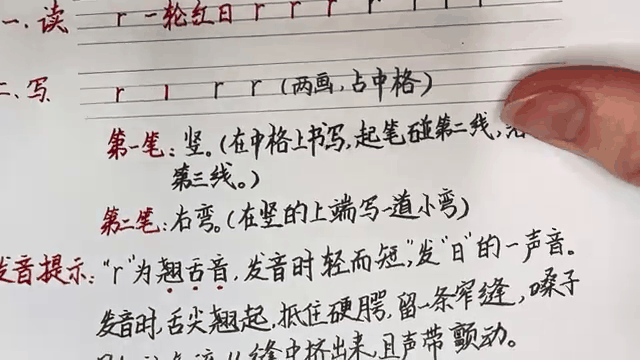 一.读 r 一轮红日 r r r r r r r
二.写 r ı r r (两画,占中格)
第一笔:竖。(在中格上书写,起笔碰第二线,
第三线。)
第二笔:右弯。(在竖的上端写一道小弯)
发音提示:“r”为翘舌音,发音时轻而短,发“日”的一声音。
发音时,舌尖翘起,抵住硬腭,留一条窄缝,嗓子
从缝中挤出来,且声带颤动。